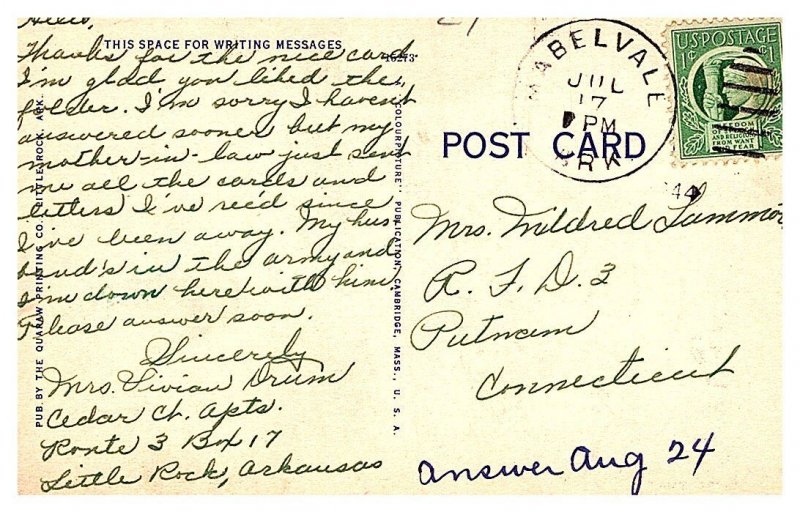 Hello,
THIS SPACE FOR WRITING MESSAGES
Thanks for the nice card
I'm glad you liked the
folder. I'm sorry I haven't
answered sooner but my
mother-in-law just sent
me all the cards and
letters I've rec'd since
I've been away. My hus-
band's in the army and
I'm down here with him.
Please answer soon.
Sincerely
Mrs. Vivian Drum
Cedar Ct. Apts.
Route 3 Box 17
Little Rock, Arkansas
PUB. BY THE QUAPAW PRINTING CO., LITTLE ROCK, ARK.
"COLOURPICTURE" PUBLICATION, CAMBRIDGE, MASS., U. S. A.
16273
POST CARD
MABELVALE
JUL
17
PM
ARK
U.S. POSTAGE
1¢ 1
FREEDOM
OF SPEECH
AND RELIGION
FROM WANT
AND FEAR
Mrs. Mildred
R. F. D. 3
Putnam
Connecticut
answer Aug 24